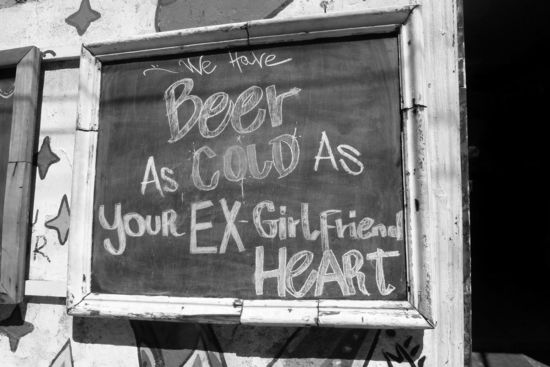 We Have
Beer
As COLD As
Your EX-GirlFriend
HEART